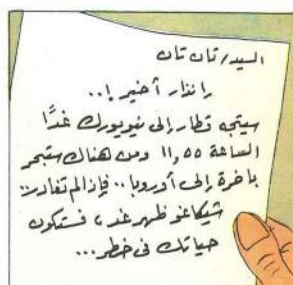 السيد/ تان تان
إنذار أخير !..
سيتجه قطار إلى نيويورك غدًا
الساعة ١١,٥٥ ومن هناك ستبحر
باخرة إلى أوروبا.. فإذا لم تغادر
شيكاغو ظهر غد، فستكون
حياتك فى خطر...